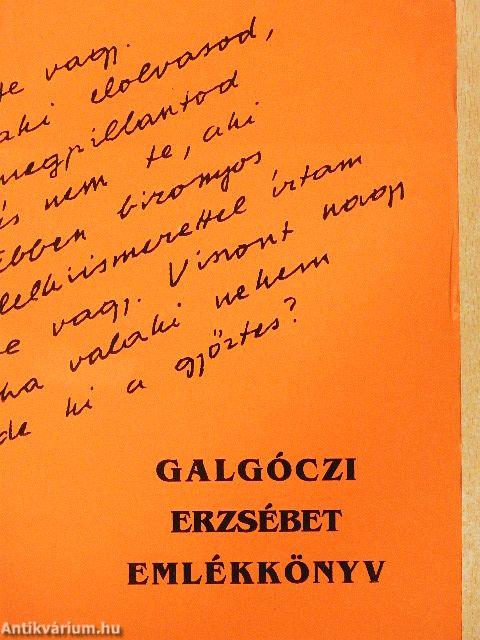 te vagy.
aki elolvasod,
megpillantod
és nem te, aki
ebben bizonyos
lelkiismerettel írtam
e vagy. Viszont nagy
ha valaki nekem
de ki a győztes?
GALGÓCZI
ERZSÉBET
EMLÉKKÖNYV
Antikvárium.hu